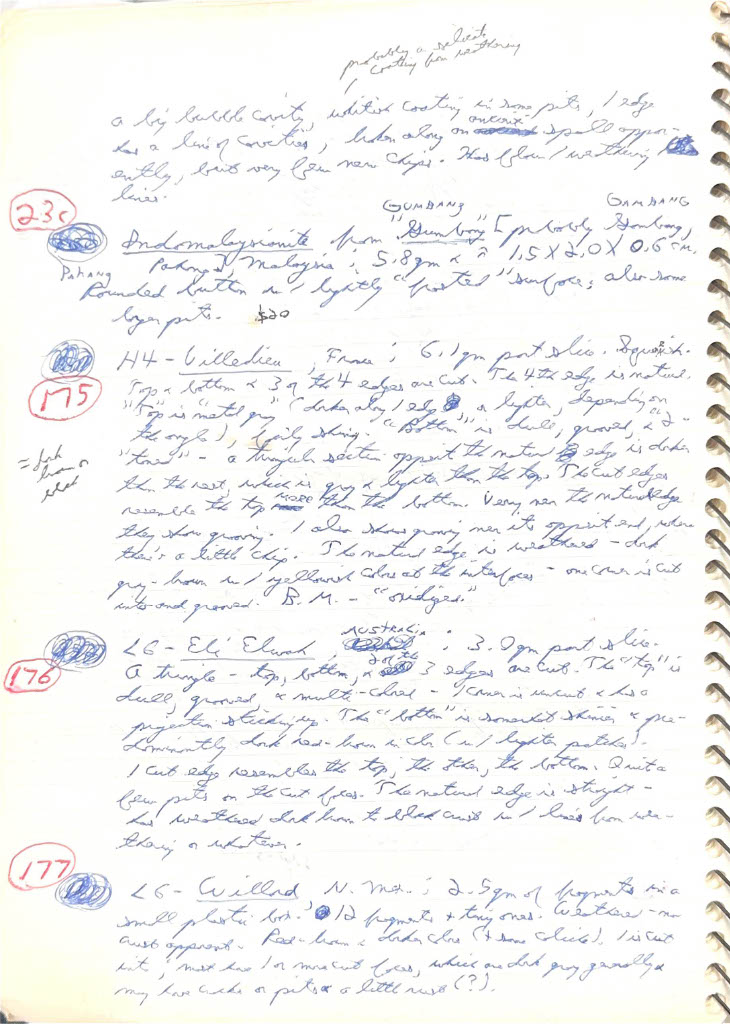 probably a
coating from weathering
a big bubble cavity, whitish coating in some pits, 1 edge
has a line of cavities; broken along an ancient spall appar-
ently, but very few new chips. Has flow/weathering
lines.
GUMBANG GAMBANG
23c
Indomalaysianite from "Gumbang" [probably Gambang,
PAHANG
Pahang], Malaysia; 5.8gm & ≈ 1.5 X 2.0 X 0.6 cm.
Rounded button w/ lightly "frosted" surface; also some
larger pits. $20
H4 - Villedieu, France; 6.1gm part slice. Squarish.
175
Top & bottom & 3 of the 4 edges are cut. The 4th edge is natural.
"Top" is "metal gray" (darker along 1 edge or lighter, depending on
the angle), fairly shiny. "Bottom" is dull, grooved, & "2-
toned" - a triangular section opposite the natural edge is darker
= dark
brown or
black
than the rest, which is gray & lighter than the top. The cut edges
resemble the top MORE than the bottom. Very near the natural edge
they show grooving. 1 also shows grooving near its opposite end, where
there's a little chip. The natural edge is weathered - dark
gray-brown w/ yellowish color at the interfaces - one corner is cut
into and grooved. B.M. - "oxidized."
AUSTRALIA
L6 - Eli Elwah, ; 3.0gm part slice.
2 of the
176
A triangle - top, bottom, & 3 edges are cut. The "top" is
dull, grooved, & multi-colored - 1 corner is uncut & has a
projection sticking up. The "bottom" is somewhat shinier & pre-
dominantly dark red-brown in color (w/ lighter patches).
1 cut edge resembles the top, the other, the bottom. Quite a
few pits on the cut faces. The natural edge is straight -
has weathered dark brown to black crust w/ lines from wea-
thering or whatever.
177
L6 - Willard N. Mex.; 2.5gm of fragments in a
small plastic box. 12 fragments + tiny ones. Weathered - no
crust apparent. Red-brown & darker colors (+ some caliche). 1 is cut
into, most have 1 or more cut faces, which are dark gray generally &
may have cracks or pits & a little rust (?).